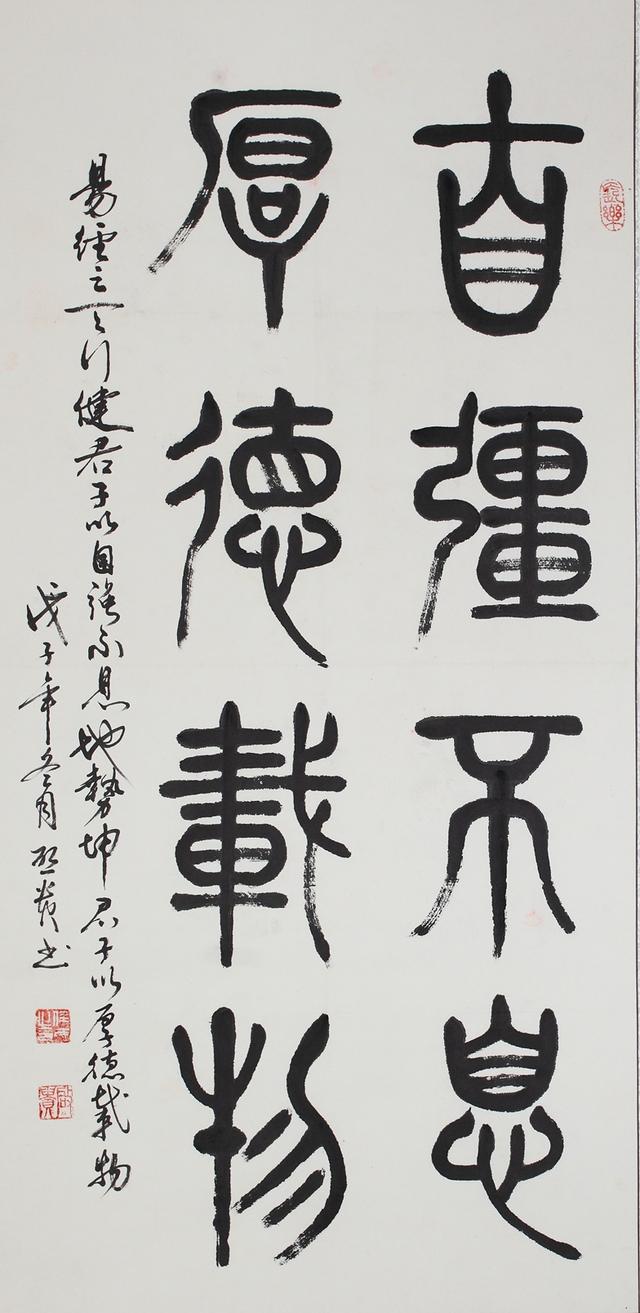 自彊不息
厚德載物
易經云天行健君子以自強不息地勢坤君子以厚德載物
戊子年冬月 书